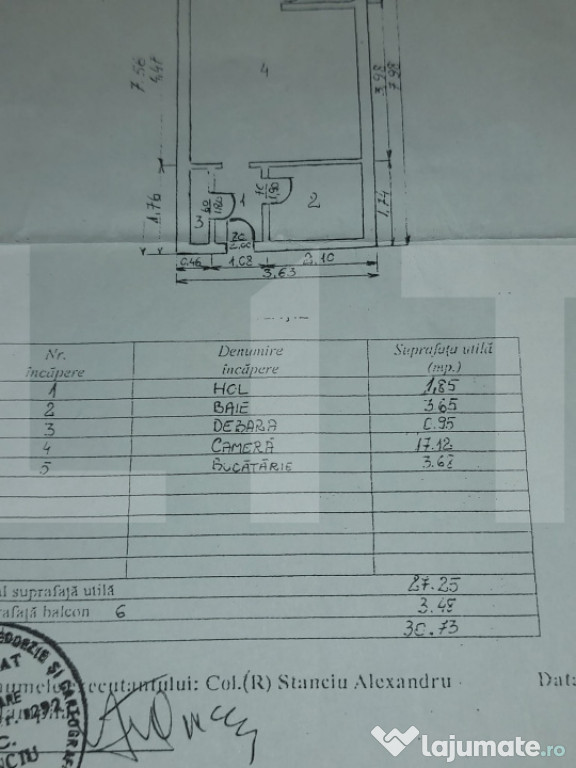 4
7.56
4,47
3.98
7.98
1.76
1.74
3
1
2
60
1.80
70
1.90
70
2.00
0.46
1.08
2.10
3.63
Nr. încăpere
Denumire încăpere
Suprafața utilă (mp.)
1 HOL 1,85
2 BAIE 3.65
3 DEBARA 0.95
4 CAMERĂ 17.12
5 BUCĂTĂRIE 3.68
suprafață utilă 27.25
balcon 6 3.48
30.73
executantului: Col.(R) Stanciu Alexandru
Data
lajumate.ro